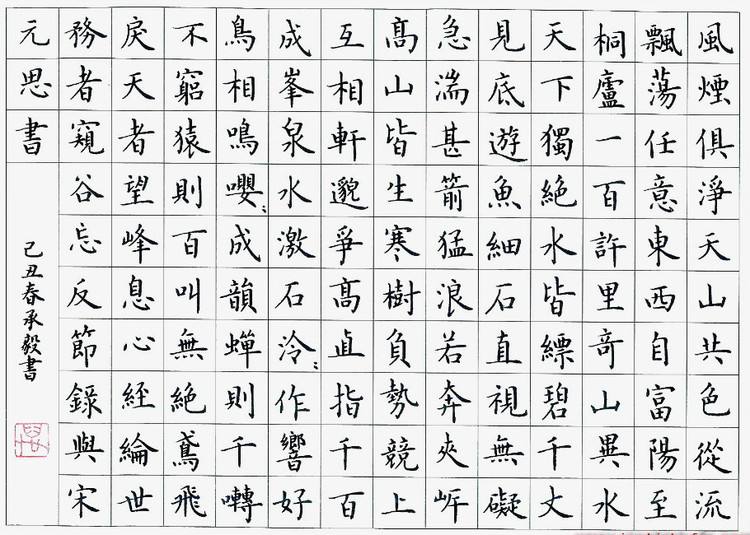 風煙俱淨天山共色從流
飄蕩任意東西自富陽至
桐廬一百許里奇山異水
天下獨絕水皆縹碧千丈
見底遊魚細石直視無礙
急湍甚箭猛浪若奔夾岸
髙山皆生寒樹負勢競上
互相軒邈爭髙直指千百
成峯泉水激石泠〻作響好
鳥相鳴嚶〻成韻蟬則千囀
不窮猿則百叫無絕鳶飛
戾天者望峰息心經綸世
務者窺谷忘反節錄與宋
元思書
己丑春承毅書